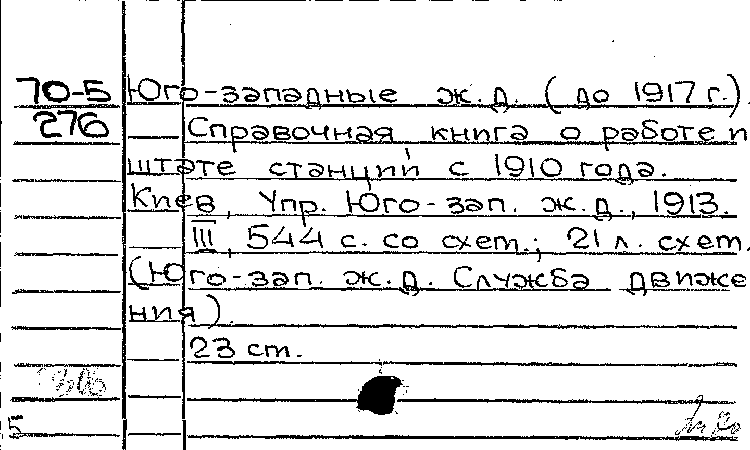 70-5 Юго-западные ж.д. (до 1917 г.).
276 Справочная книга о работе и
штате станций с 1910 года.
Киев, Упр. Юго-зап. ж.д., 1913.
III, 544 с. со схет.; 21 л. схет.
(Юго-зап. ж.д. Служба движе
ния).
23 ст.
306
5